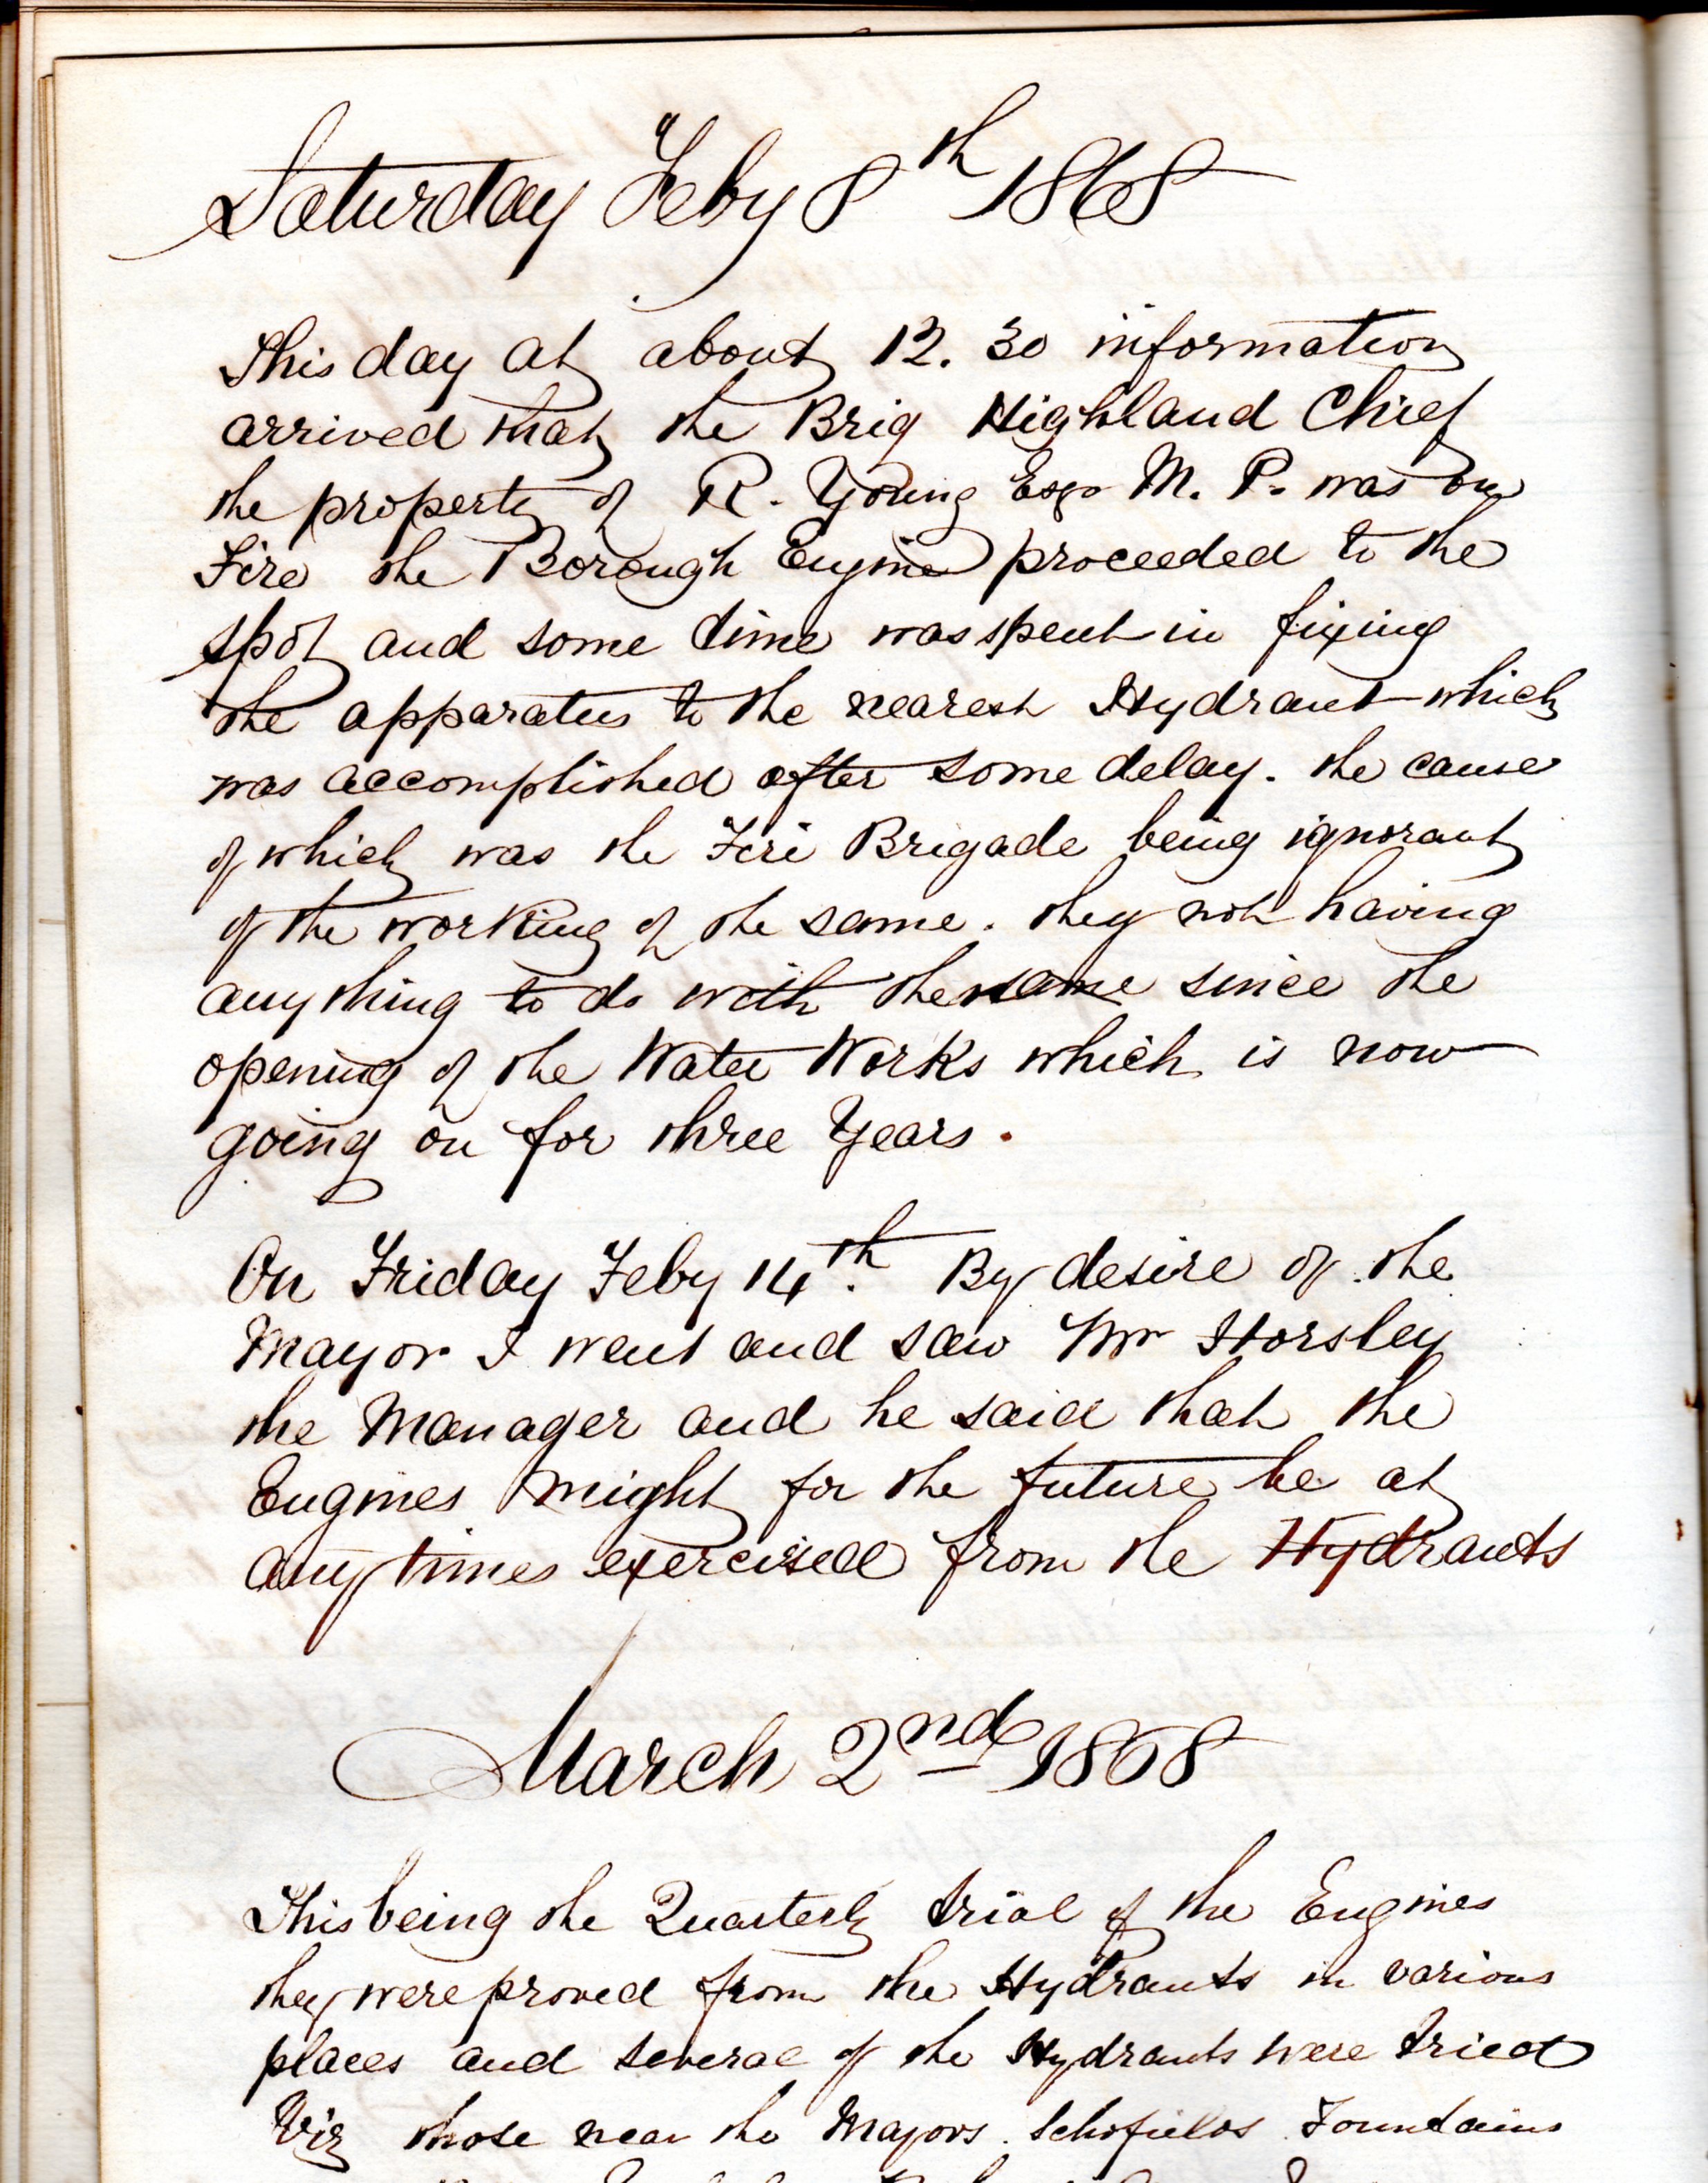 Saturday Feby 8th 1868
This day at about 12.30 information
arrived that the Brig Highland Chief
the property of R. Young Esqr M. P. was on
Fire the Borough Engine proceeded to the
spot and some time was spent in fixing
the apparatus to the nearest Hydrant which
was accomplished after some delay. the cause
of which was the Fire Brigade being ignorant
of the working of the same. they not having
anything to do with the same since the
opening of the Water Works which is now
going on for three Years.
On Friday Feby 14th. By desire of the
Mayor I went and saw Mr Horsley
the Manager and he said that the
Engines might for the future be at
any times exercised from the Hydrants
March 2nd 1868
This being the Quarterly trial of the Engines
they were proved from the Hydrants in various
places and several of the Hydrants were tried
Viz those near the Mayors. Schofields Fountains